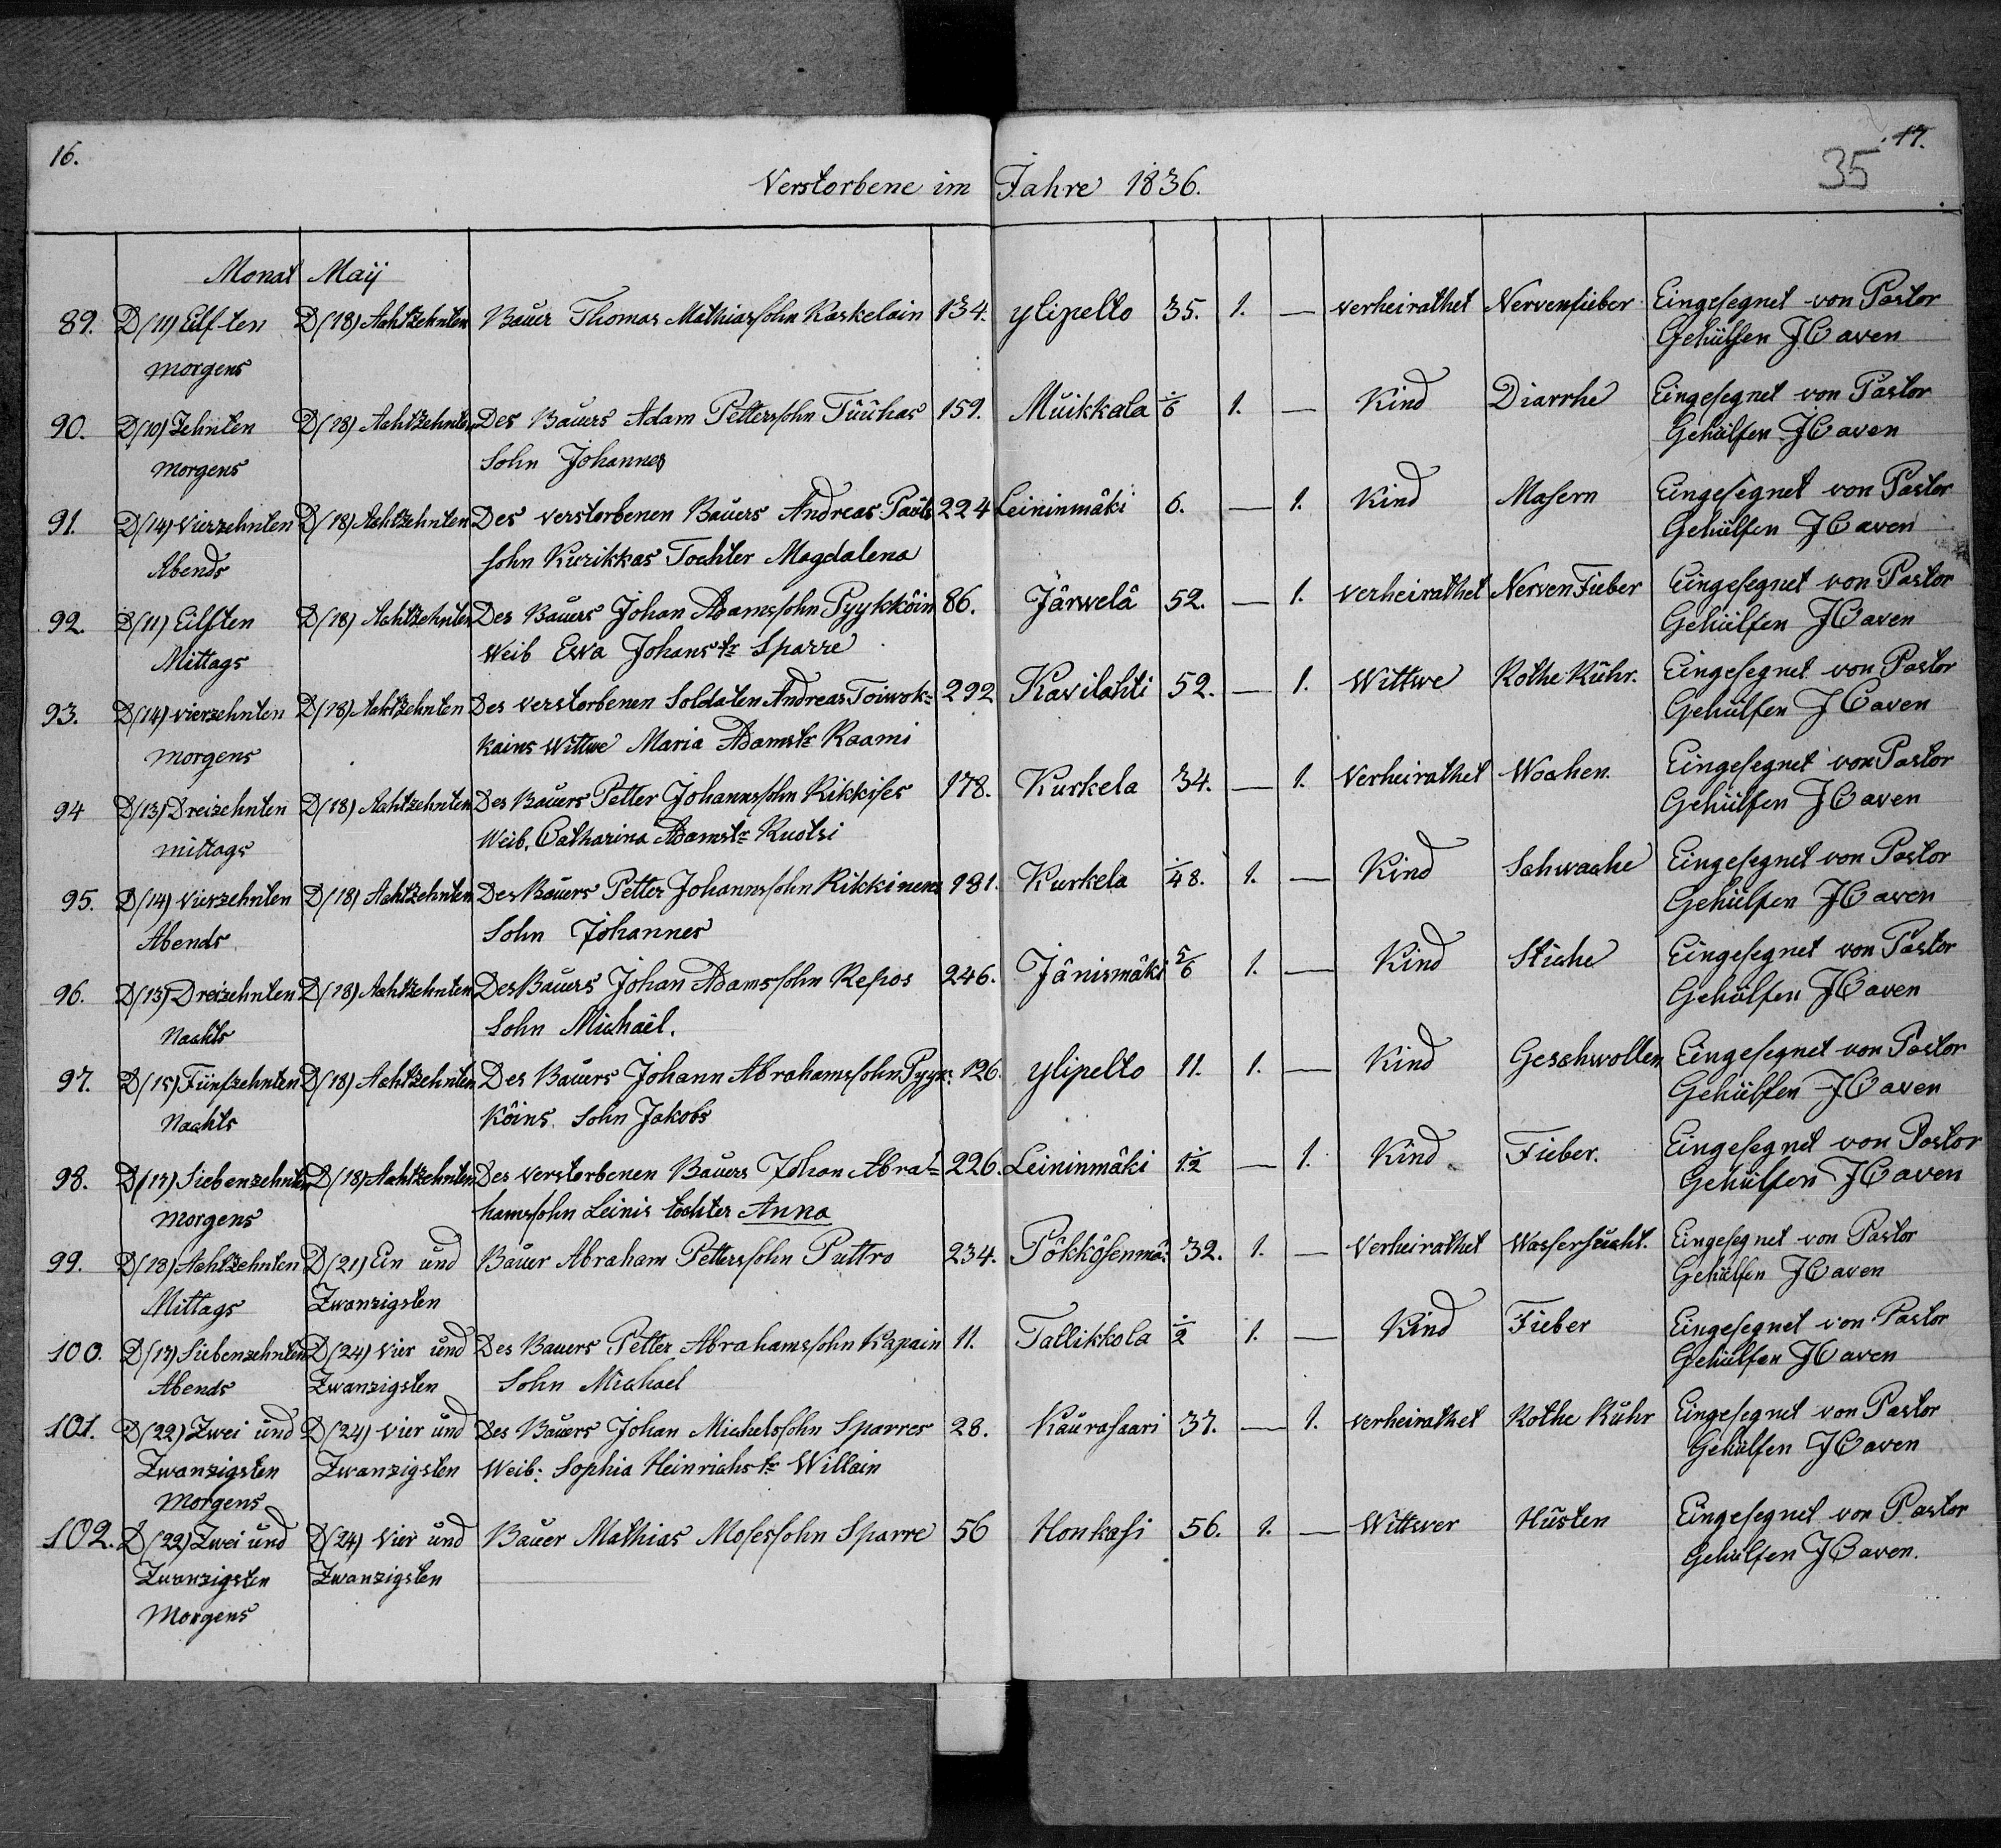 16.
17.
35
Verstorbene im Jahre 1836.
Monat Maÿ
89. D(11) Eilften D(18) Achtzehnten Bauer Thomas Mathiassohn Kaskelain 134. Ylipelto 35. 1. — verheirathet Nervenfieber Eingesegnet von Pastor
morgens Gehülfen JCaven
90. D(10) Zehnten D(18) Achtzehnten Des Bauers Adam Petterssohn Tuuhas 159. Muikkala ⁒6 1. — Kind Diarrhe Eingesegnet von Pastor
morgens Sohn Johannes Gehülfen JCaven
91. D(14) Vierzehnten D(18) Achtzehnten Des verstorbenen Bauers Andreas Pauls 224 Leininmäki 6. — 1. Kind Masern Eingesegnet von Pastor
Abends sohn Kurikkas Tochter Magdalena Gehülfen JCaven
92. D(11) Eilften D(18) Achtzehnten Des Bauers Johan Adamssohn Pyykköin 86. Järwelä 52. — 1. verheirathet Nerven Fieber Eingesegnet von Pastor
Mittags Weib Ewa Johanstr Sparre Gehülfen JCaven
93. D(14) vierzehnten D(18) Achtzehnten Des verstorbenen Soldaten Andreas Toiwok= 292 Kavilahti 52. — 1. Wittwe Rothe Ruhr. Eingesegnet von Pastor
morgens kains Wittwe Maria Adamstr Raami Gehülfen JCaven
94 D(13) Dreizehnten D(18) Achtzehnten Des Bauers Petter Johannssohn Kikkises 178. Kurkela 34. — 1. Verheirathet Wochen. Eingesegnet von Pastor
mittags Weib. Catharina Adamstr Ruotsi Gehülfen JCaven
95. D(14) Vierzehnten D(18) Achtzehnten Des Bauers Petter Johannssohn Kikkinens 181. Kurkela ⁒48. 1. — Kind Schwache Eingesegnet von Pastor
Abends Sohn Johannes Gehülfen JCaven
96. D(13) Dreizehnten D(18) Achtzehnten Des Bauers Johan Adamssohn Repos 246. Jänismäki 5/6 1. — Kind Stiche Eingesegnet von Pastor
Nachts Sohn Michaël. Gehülfen JCaven
97. D(15) Fünfzehnten D(18) Achtzehnten Des Bauers Johann Abrahamssohn Pyyk: 126. Ylipelto 11. 1. — Kind Geschwollen Eingesegnet von Pastor
Nachts köins Sohn Jakobs Gehülfen JCaven
98. D(17) Siebenzehnten D(18) Achtzehnten Des verstorbenen Bauers Johan Abra= 226. Leininmäki — 1. Kind Fieber. Eingesegnet von Pastor
Morgens hamssohn Leinis tochter Anna Gehülfen JCaven
99. D(18) Achtzehnten D(21) Ein und Bauer Abraham Petterssohn Puttro 234. Pökkösenmä: 32. 1. — Verheirathet Wassersucht. Eingesegnet von Pastor
Mittags Zwanzigsten Gehülfen JCaven
100. D(17) Siebenzehnten D(24) Vier und Des Bauers Petter Abrahamssohn Kapain 11. Tallikkola ⁒2 1. — Kind Fieber Eingesegnet von Pastor
Abends Zwanzigsten Sohn Michael Gehülfen JCaven
101. D(22) Zwei und D(24) Vier und Des Bauers Johan Michelssohn Sparres 28. Kaurasaari 37. — 1. verheirathet Rothe Ruhr Eingesegnet von Pastor
Zwanzigsten Zwanzigsten Weib: Sophia Heinrichstr Willain Gehülfen JCaven
Morgens
102. D(22) Zwei und D(24) Vier und Bauer Mathias Mosessohn Sparre 56 Honkasi 56. 1. — Wittwer Husten Eingesegnet von Pastor
Zwanzigsten Zwanzigsten Gehülfen JCaven.
Morgens